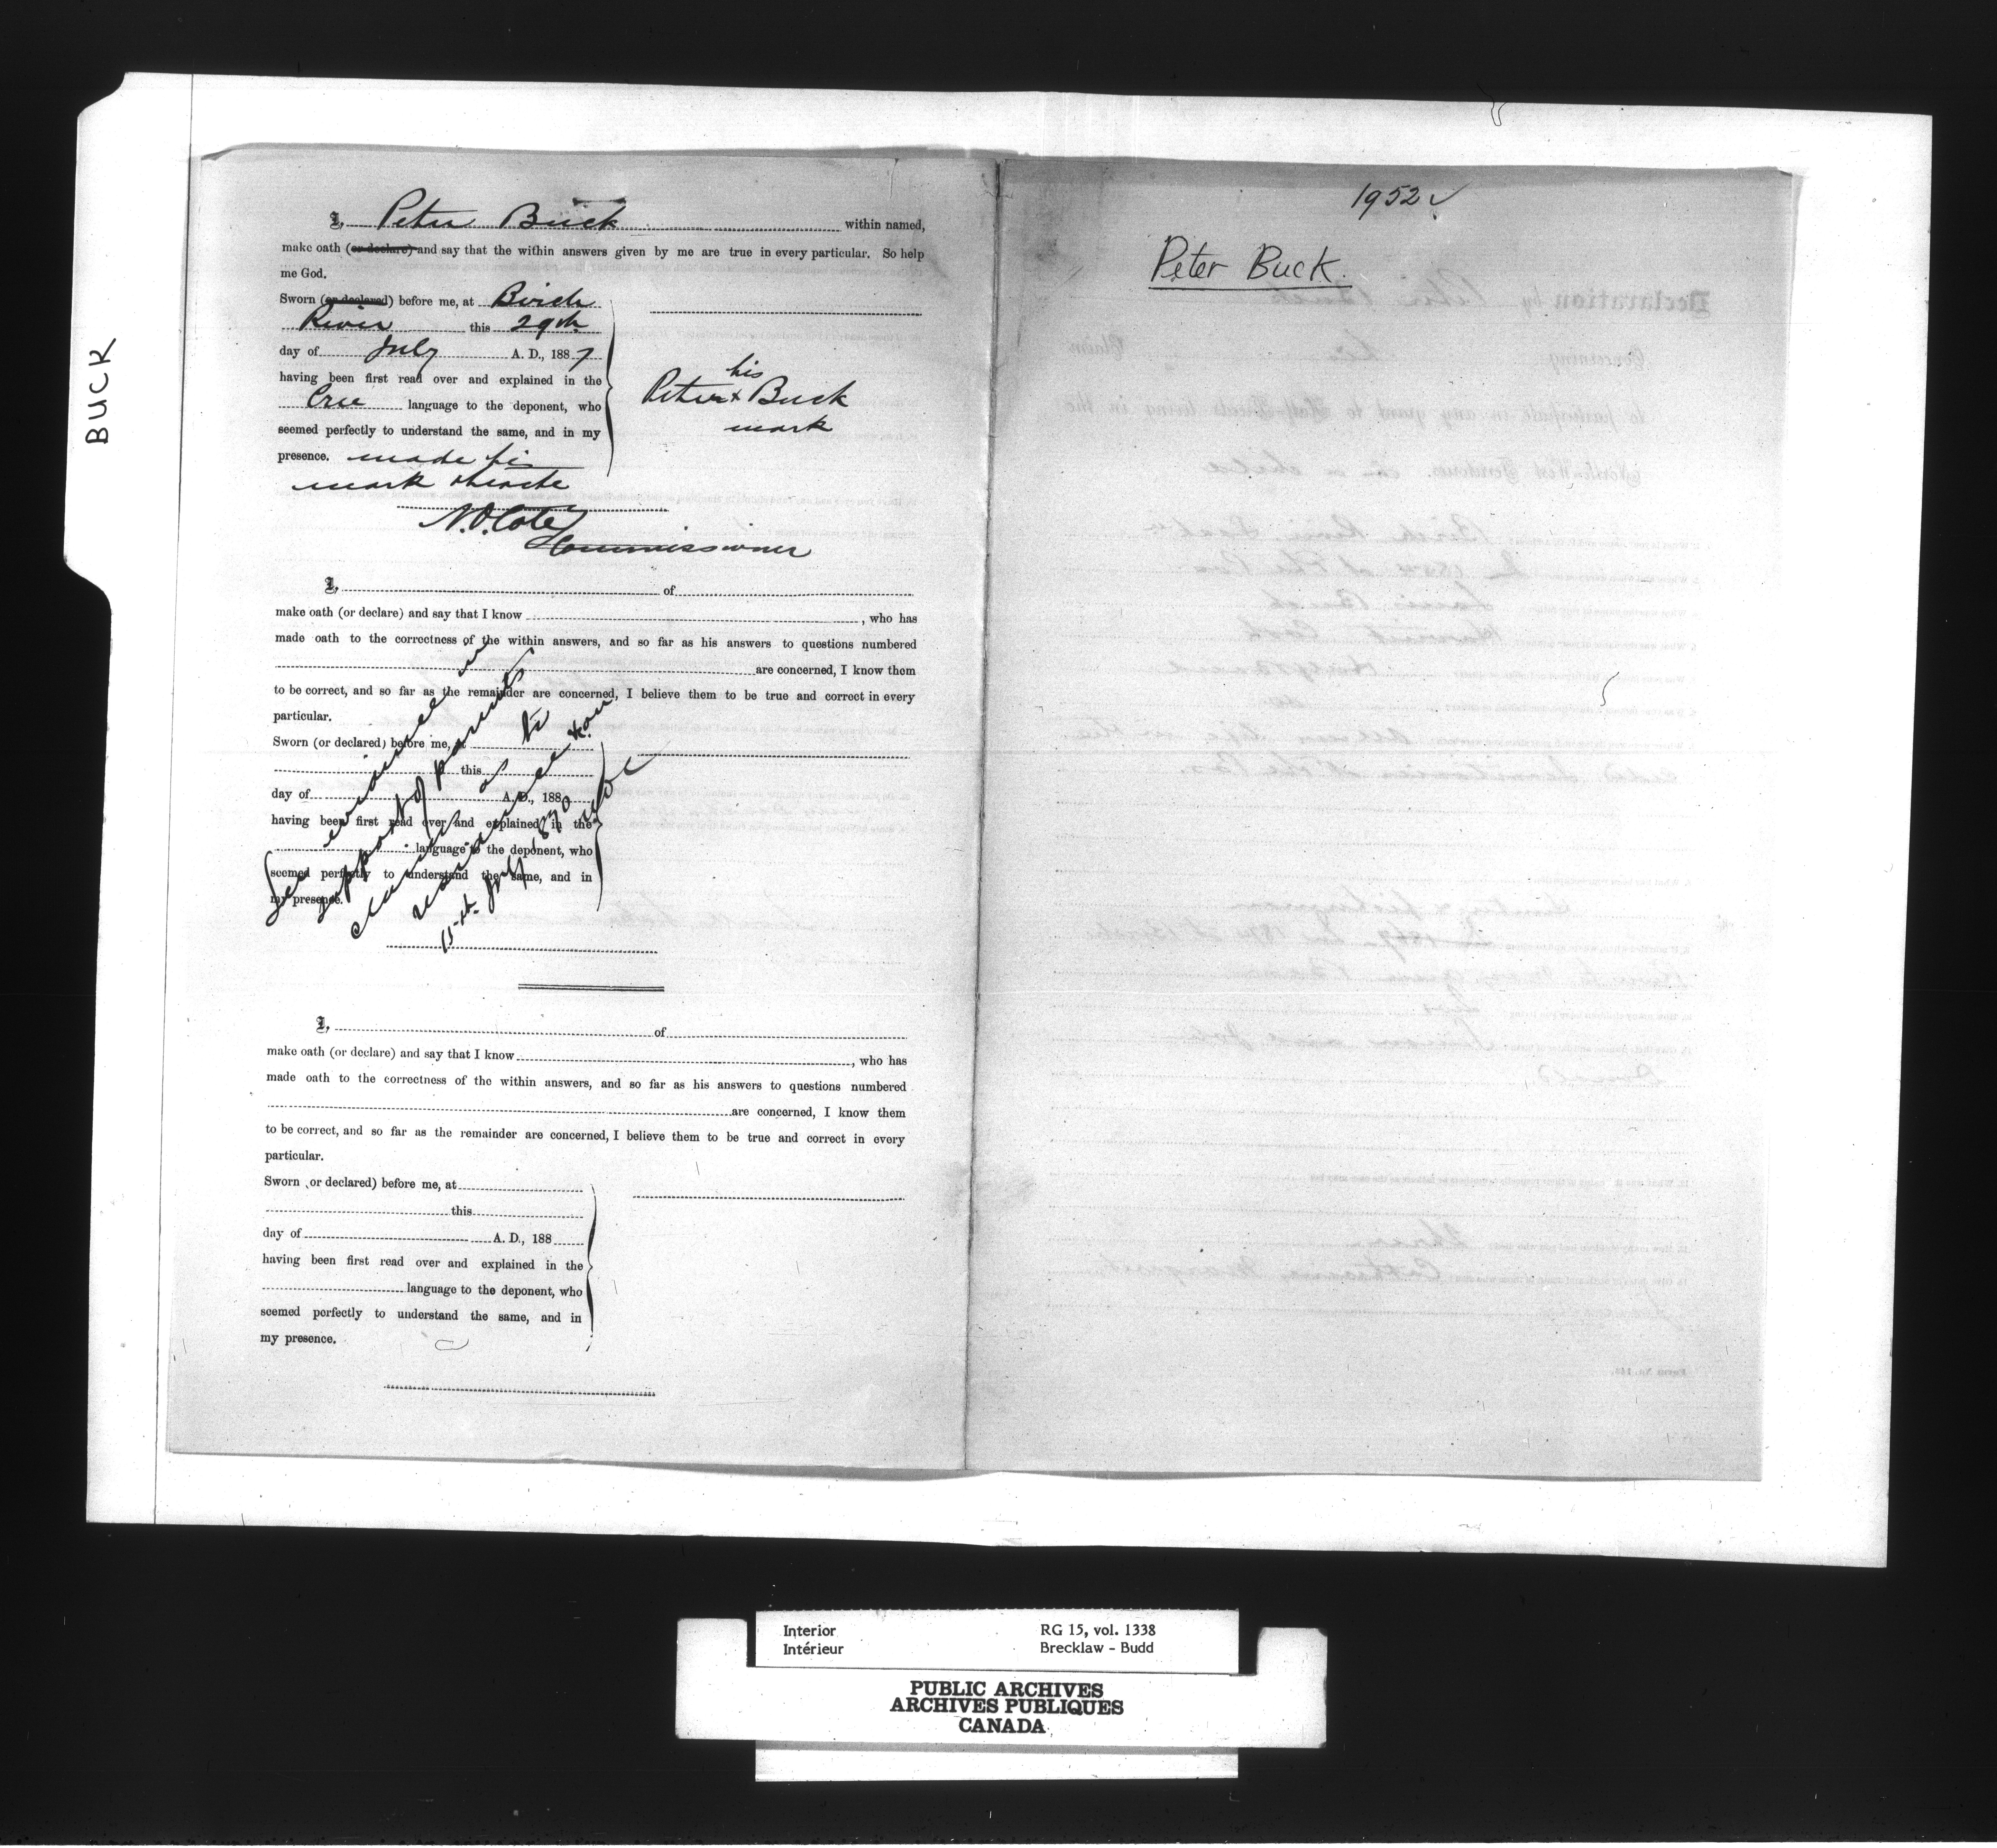 BUCK
I, Peter Buck within named,
make oath (or declare) and say that the within answers given by me are true in every particular. So help
me God.
Sworn (or declared) before me, at Birch
River this 29th
day of July A. D., 1887
having been first read over and explained in the
Cree language to the deponent, who
seemed perfectly to understand the same, and in my
presence. made his
mark thereto
his
Peter x Buck
mark
N.O. Coté
Commissioner
I, of
make oath (or declare) and say that I know , who has
made oath to the correctness of the within answers, and so far as his answers to questions numbered
are concerned, I know them
to be correct, and so far as the remainder are concerned, I believe them to be true and correct in every
particular.
Sworn (or declared) before me, at
this
day of A. D., 188
having been first read over and explained in the
language to the deponent, who
seemed perfectly to understand the same, and in
my presence.
See evidence in
support of parents
claim as to
residence on
15th July 1870
I, of
make oath (or declare) and say that I know , who has
made oath to the correctness of the within answers, and so far as his answers to questions numbered
are concerned, I know them
to be correct, and so far as the remainder are concerned, I believe them to be true and correct in every
particular.
Sworn or declared) before me, at
this
day of A. D., 188
having been first read over and explained in the
language to the deponent, who
seemed perfectly to understand the same, and in
my presence.
1952
Peter Buck.
Interior RG 15, vol. 1338
Intérieur Brecklaw - Budd
PUBLIC ARCHIVES
ARCHIVES PUBLIQUES
CANADA